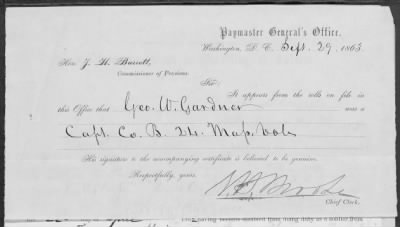 Paymaster General's Office,
Washington, D. C. Sept. 29, 1863
Hon. J. H. Barrett,
Commissioner of Pensions.
Sir:
It appears from the rolls on file in
this Office that Geo. W. Gardner was a
Capt. Co. B. 24. Mass. Vols
His signature to the accompanying certificate is believed to be genuine.
Respectfully, yours,
Chief Clerk.